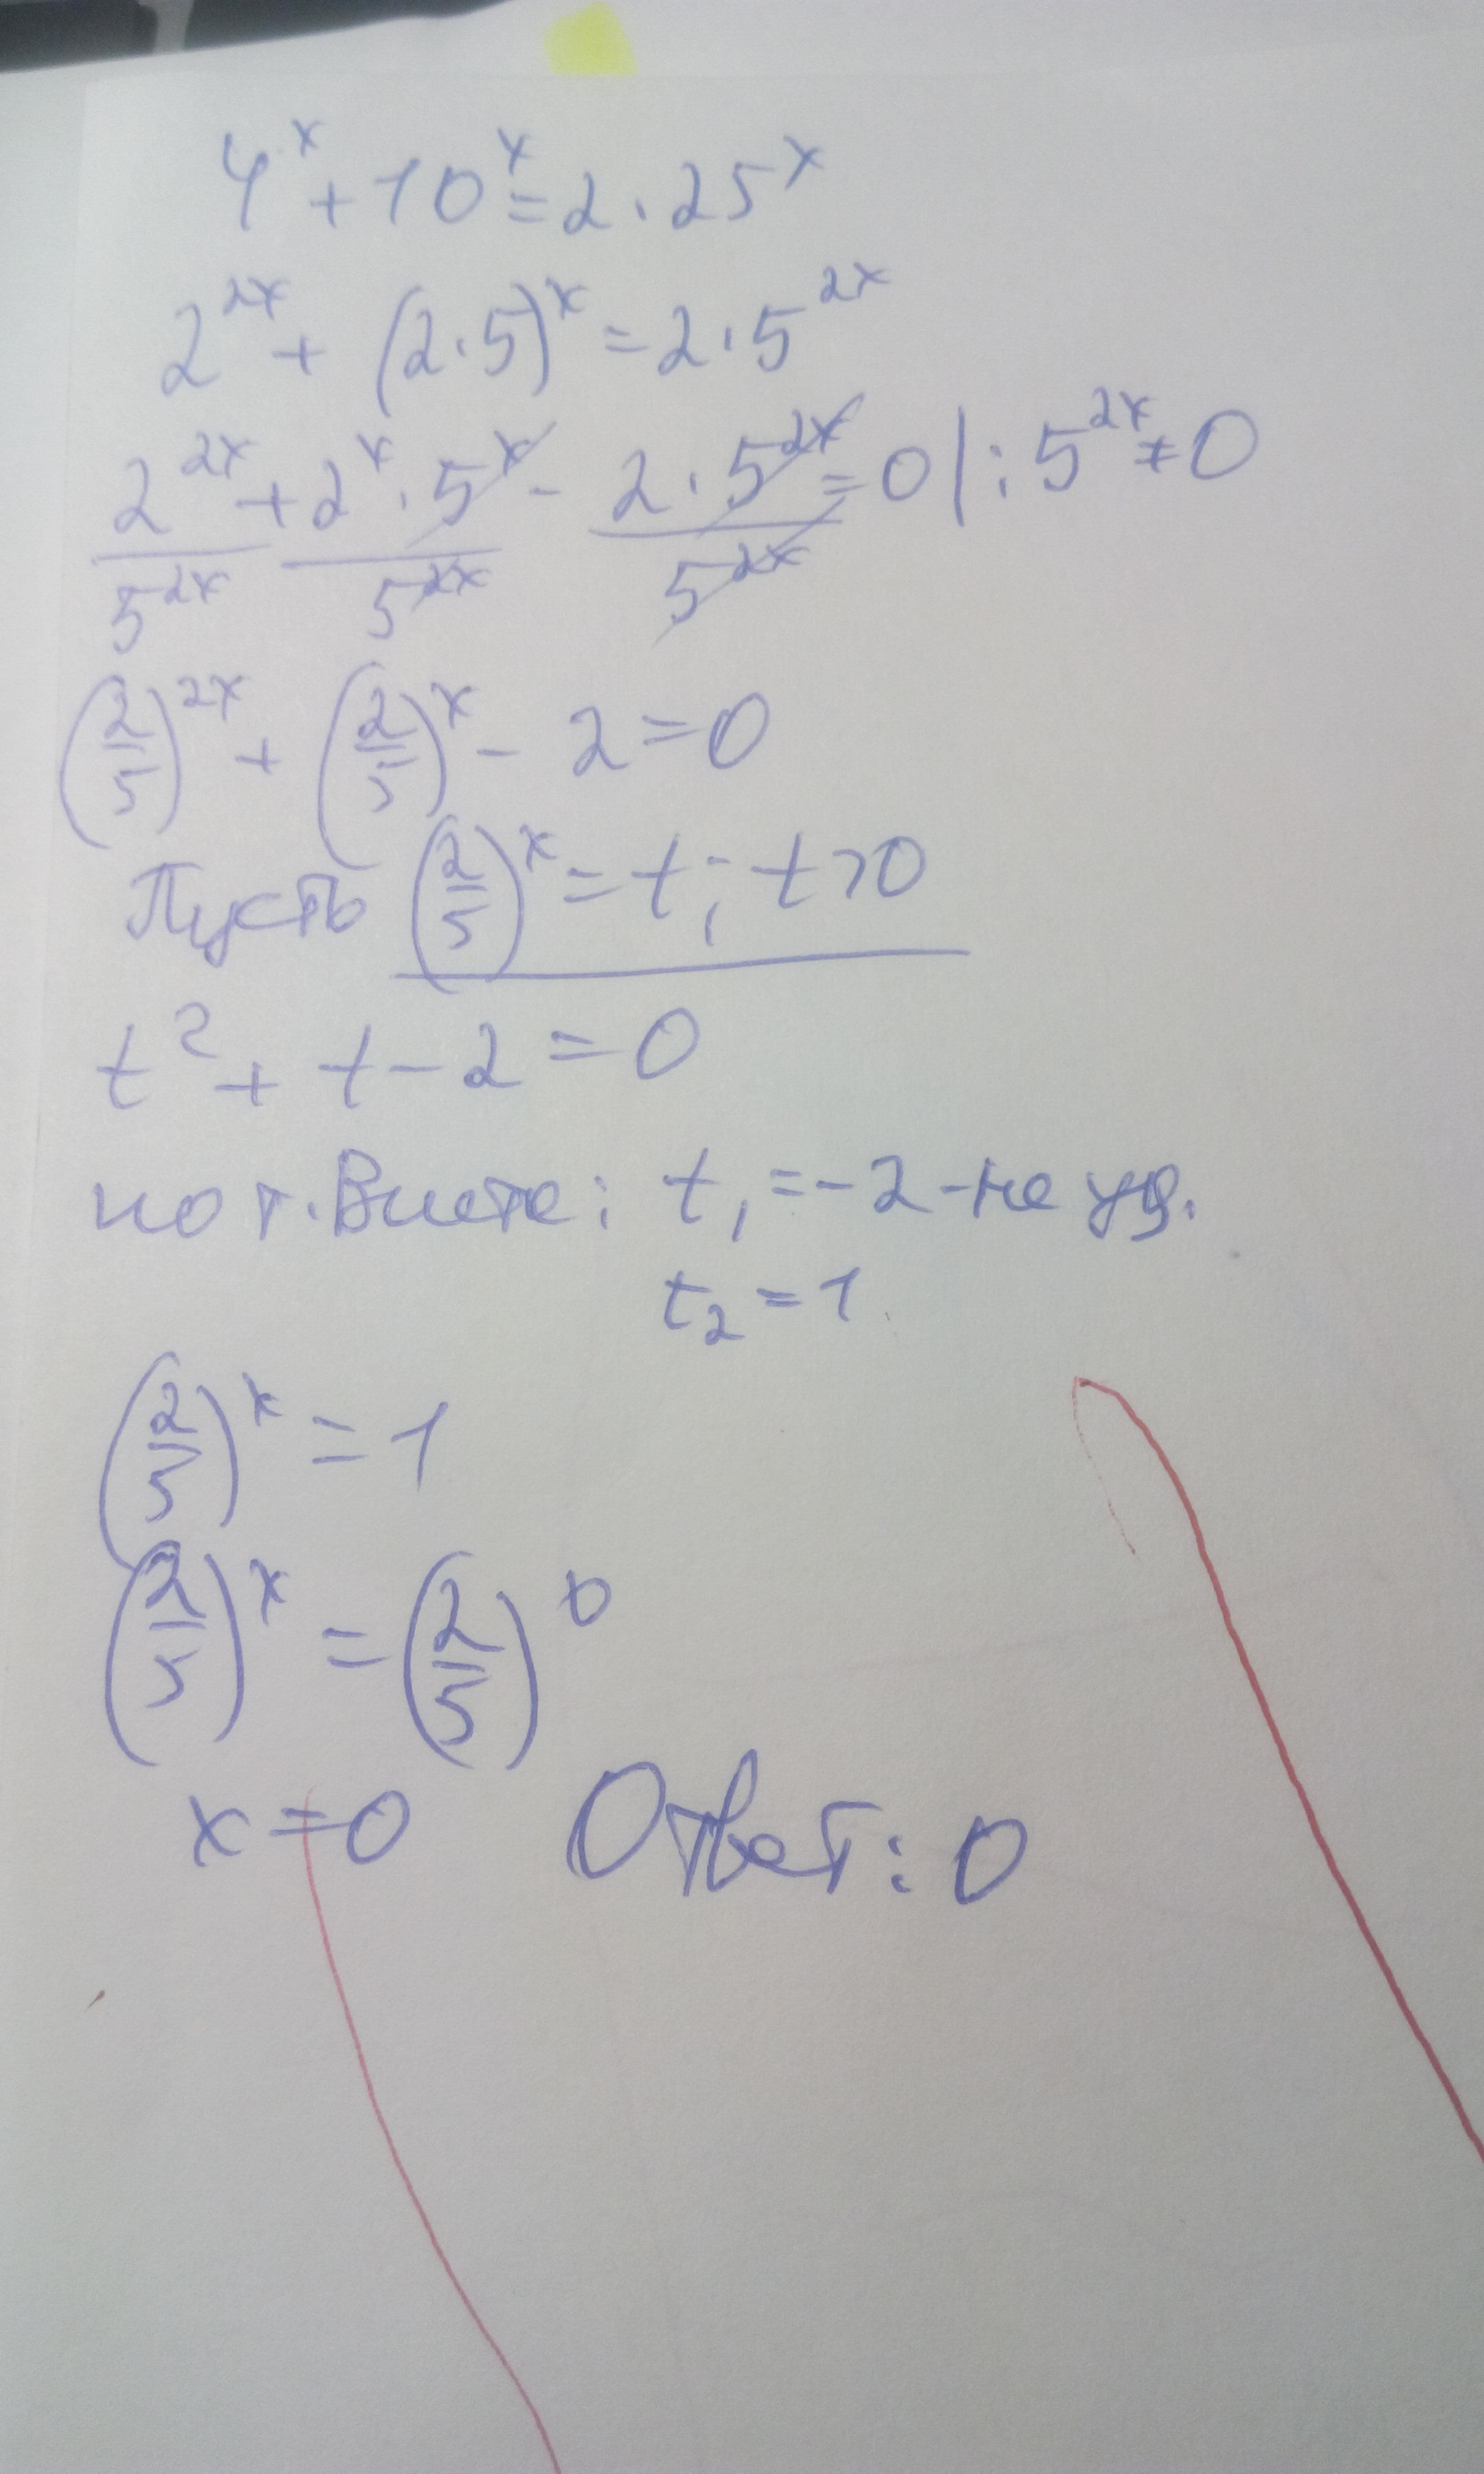 4^x + 10^x = 2 · 25^x
2^{2x} + (2·5)^x = 2 · 5^{2x}
2^{2x}/5^{2x} + 2^x · 5^x/5^{2x} - 2 · 5^{2x}/5^{2x} = 0 | : 5^{2x} ≠ 0
(2/5)^{2x} + (2/5)^x - 2 = 0
Пусть (2/5)^x = t; t > 0
t^2 + t - 2 = 0
по т. Виета: t_1 = -2 - не уд.
t_2 = 1
(2/5)^x = 1
(2/5)^x = (2/5)^0
x = 0 Ответ: 0